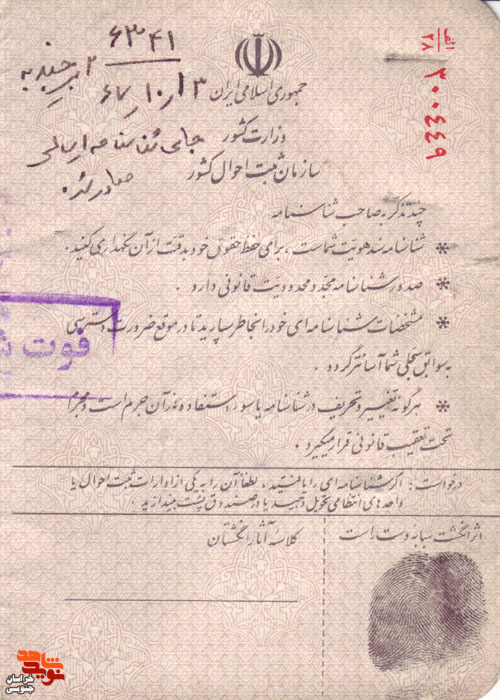 الف
۲۸
۳۰۰۴۴۹
۶۳۴۱
۶۷/۱۰/۱۳
جای شناسنامه ارسالی
صادر شد.
جمهوری اسلامی ایران
وزارت کشور
سازمان ثبت احوال کشور
چند تذکر به صاحب شناسنامه
* شناسنامه سند هویت شماست ، برای حفظ حقوق خود بدقت از آن نگهداری کنید .
* صدور شناسنامه مجدد محدودیت قانونی دارد .
* مشخصات شناسنامه ای خود را بخاطر بسپارید تا در موقع ضرورت دسترسی
به سوابق سجلی شما آسانتر گردد .
* هرگونه تغییر و تحریف در شناسنامه یا سوء استفاده از آن جرم است و مجرم
تحت تعقیب قانونی قرار میگیرد .
فوت
درخواست : اگر شناسنامه ای را یافتید ، لطفاً آن را به یکی از ادارات ثبت احوال یا
واحدهای انتظامی تحویل دهید یا در صندوق پست بیندازید .
اثر انگشت سبابه دست راست
کلاسه آثار انگشتان
نوید شاهد
خراسان
جنوبی